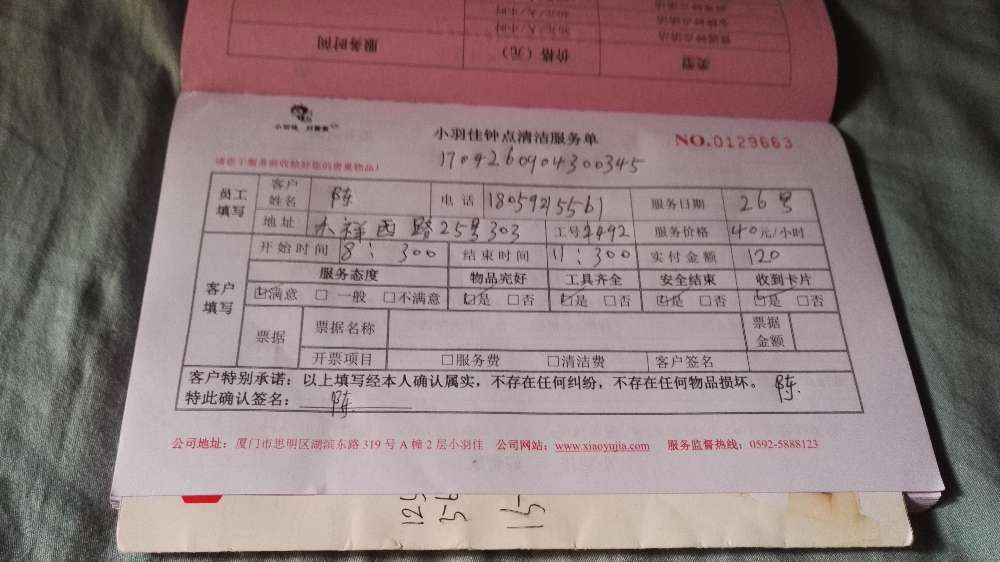 类型
价格（元）
服务时间
小羽佳
小羽佳钟点清洁服务单
NO.0129663
1709260904300345
员工填写
客户姓名 陈 电话 18059215561 服务日期 26号
地址 祥西路25号303 工号 2492 服务价格 40元/小时
客户填写
开始时间 8:300 结束时间 11:300 实付金额 120
服务态度 物品完好 工具齐全 安全结束 收到卡片
☑满意 □一般 □不满意 ☑是 □否 ☑是 □否 ☑是 □否 ☑是 □否
票据 票据名称 票据金额
开票项目 □服务费 □清洁费 客户签名
客户特别承诺：以上填写经本人确认属实，不存在任何纠纷，不存在任何物品损坏。 陈
特此确认签名： 陈
公司地址：厦门市思明区湖滨东路319号A幢2层小羽佳 公司网站：www.xiaoyujia.com 服务监督热线：0592-5888123